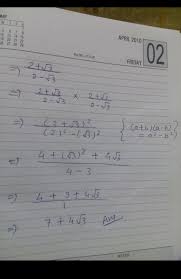 APRIL 2010
02
FRIDAY
⇒) 2+√3 / 2-√3
⇒) 2+√3 / 2-√3 × 2+√3 / 2-√3
⇒) (2+√3)² / (2)²-(√3)² { (a+b)(a-b) = a²-b² }
⇒) 4+(√3)²+4√3 / 4-3
⇒) 4+3+4√3 / 1
⇒) 7+4√3 Ans